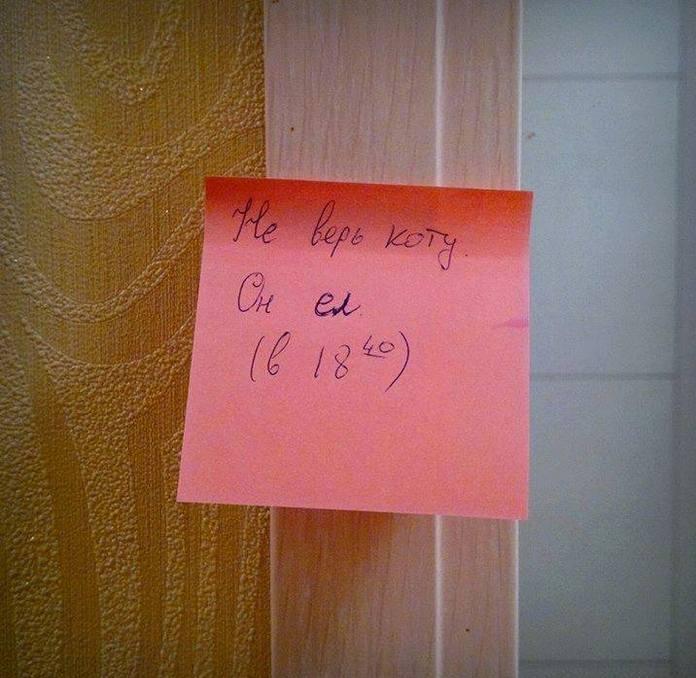 Не верь коту.
Он ел.
(в 18⁴⁰)